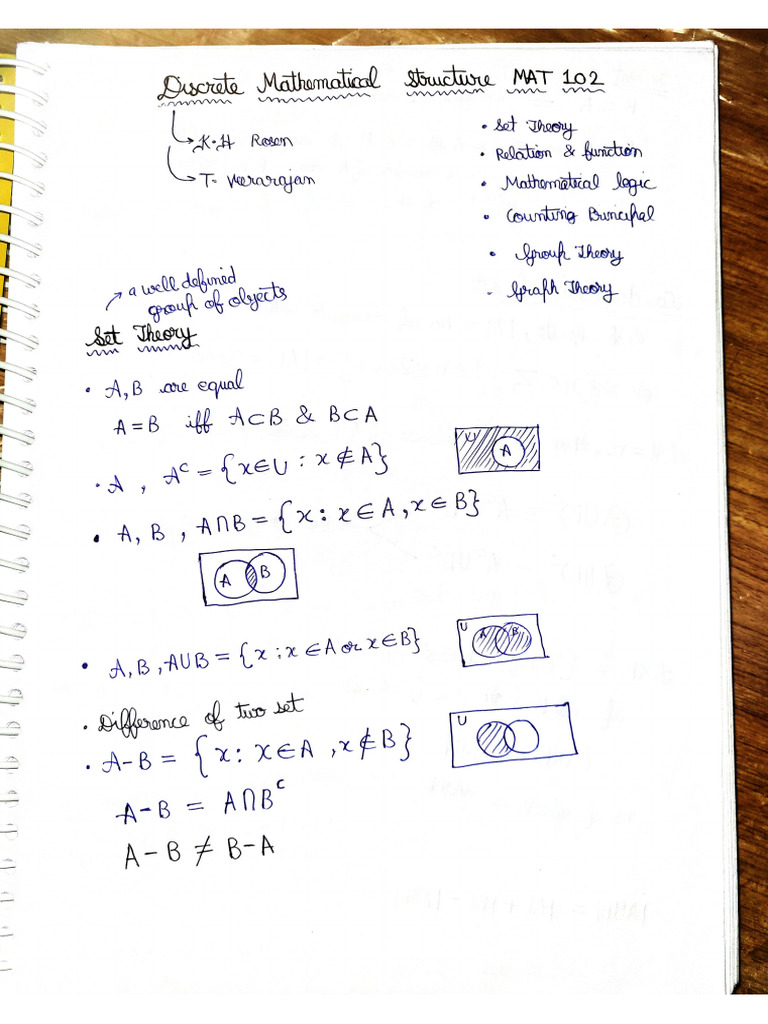 Discrete Mathematical Structure MAT 102
K.H Rosen
T. Veerarajan
• Set Theory
• Relation & function
• Mathematical logic
• Counting Principal
• Group Theory
- Graph Theory
a well defined
group of objects
Set Theory
• A, B are equal
A = B iff A⊂B & B⊂A
• A, Aᶜ = {x∈U : x∉A}
U A
• A, B, A∩B = {x : x∈A, x∈B}
A B
• A, B, A∪B = {x : x∈A or x∈B}
U A B
• Difference of two set
• A-B = {x : x∈A, x∉B}
U
A-B = A∩Bᶜ
A-B ≠ B-A